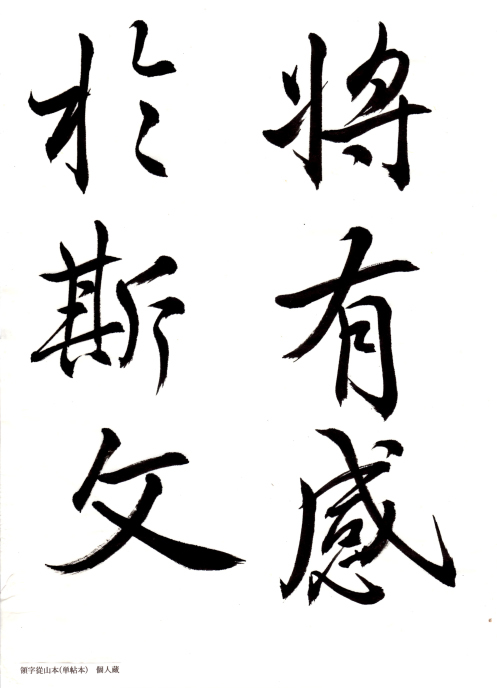 將有感
於斯文
領字從山本(單帖本) 個人蔵